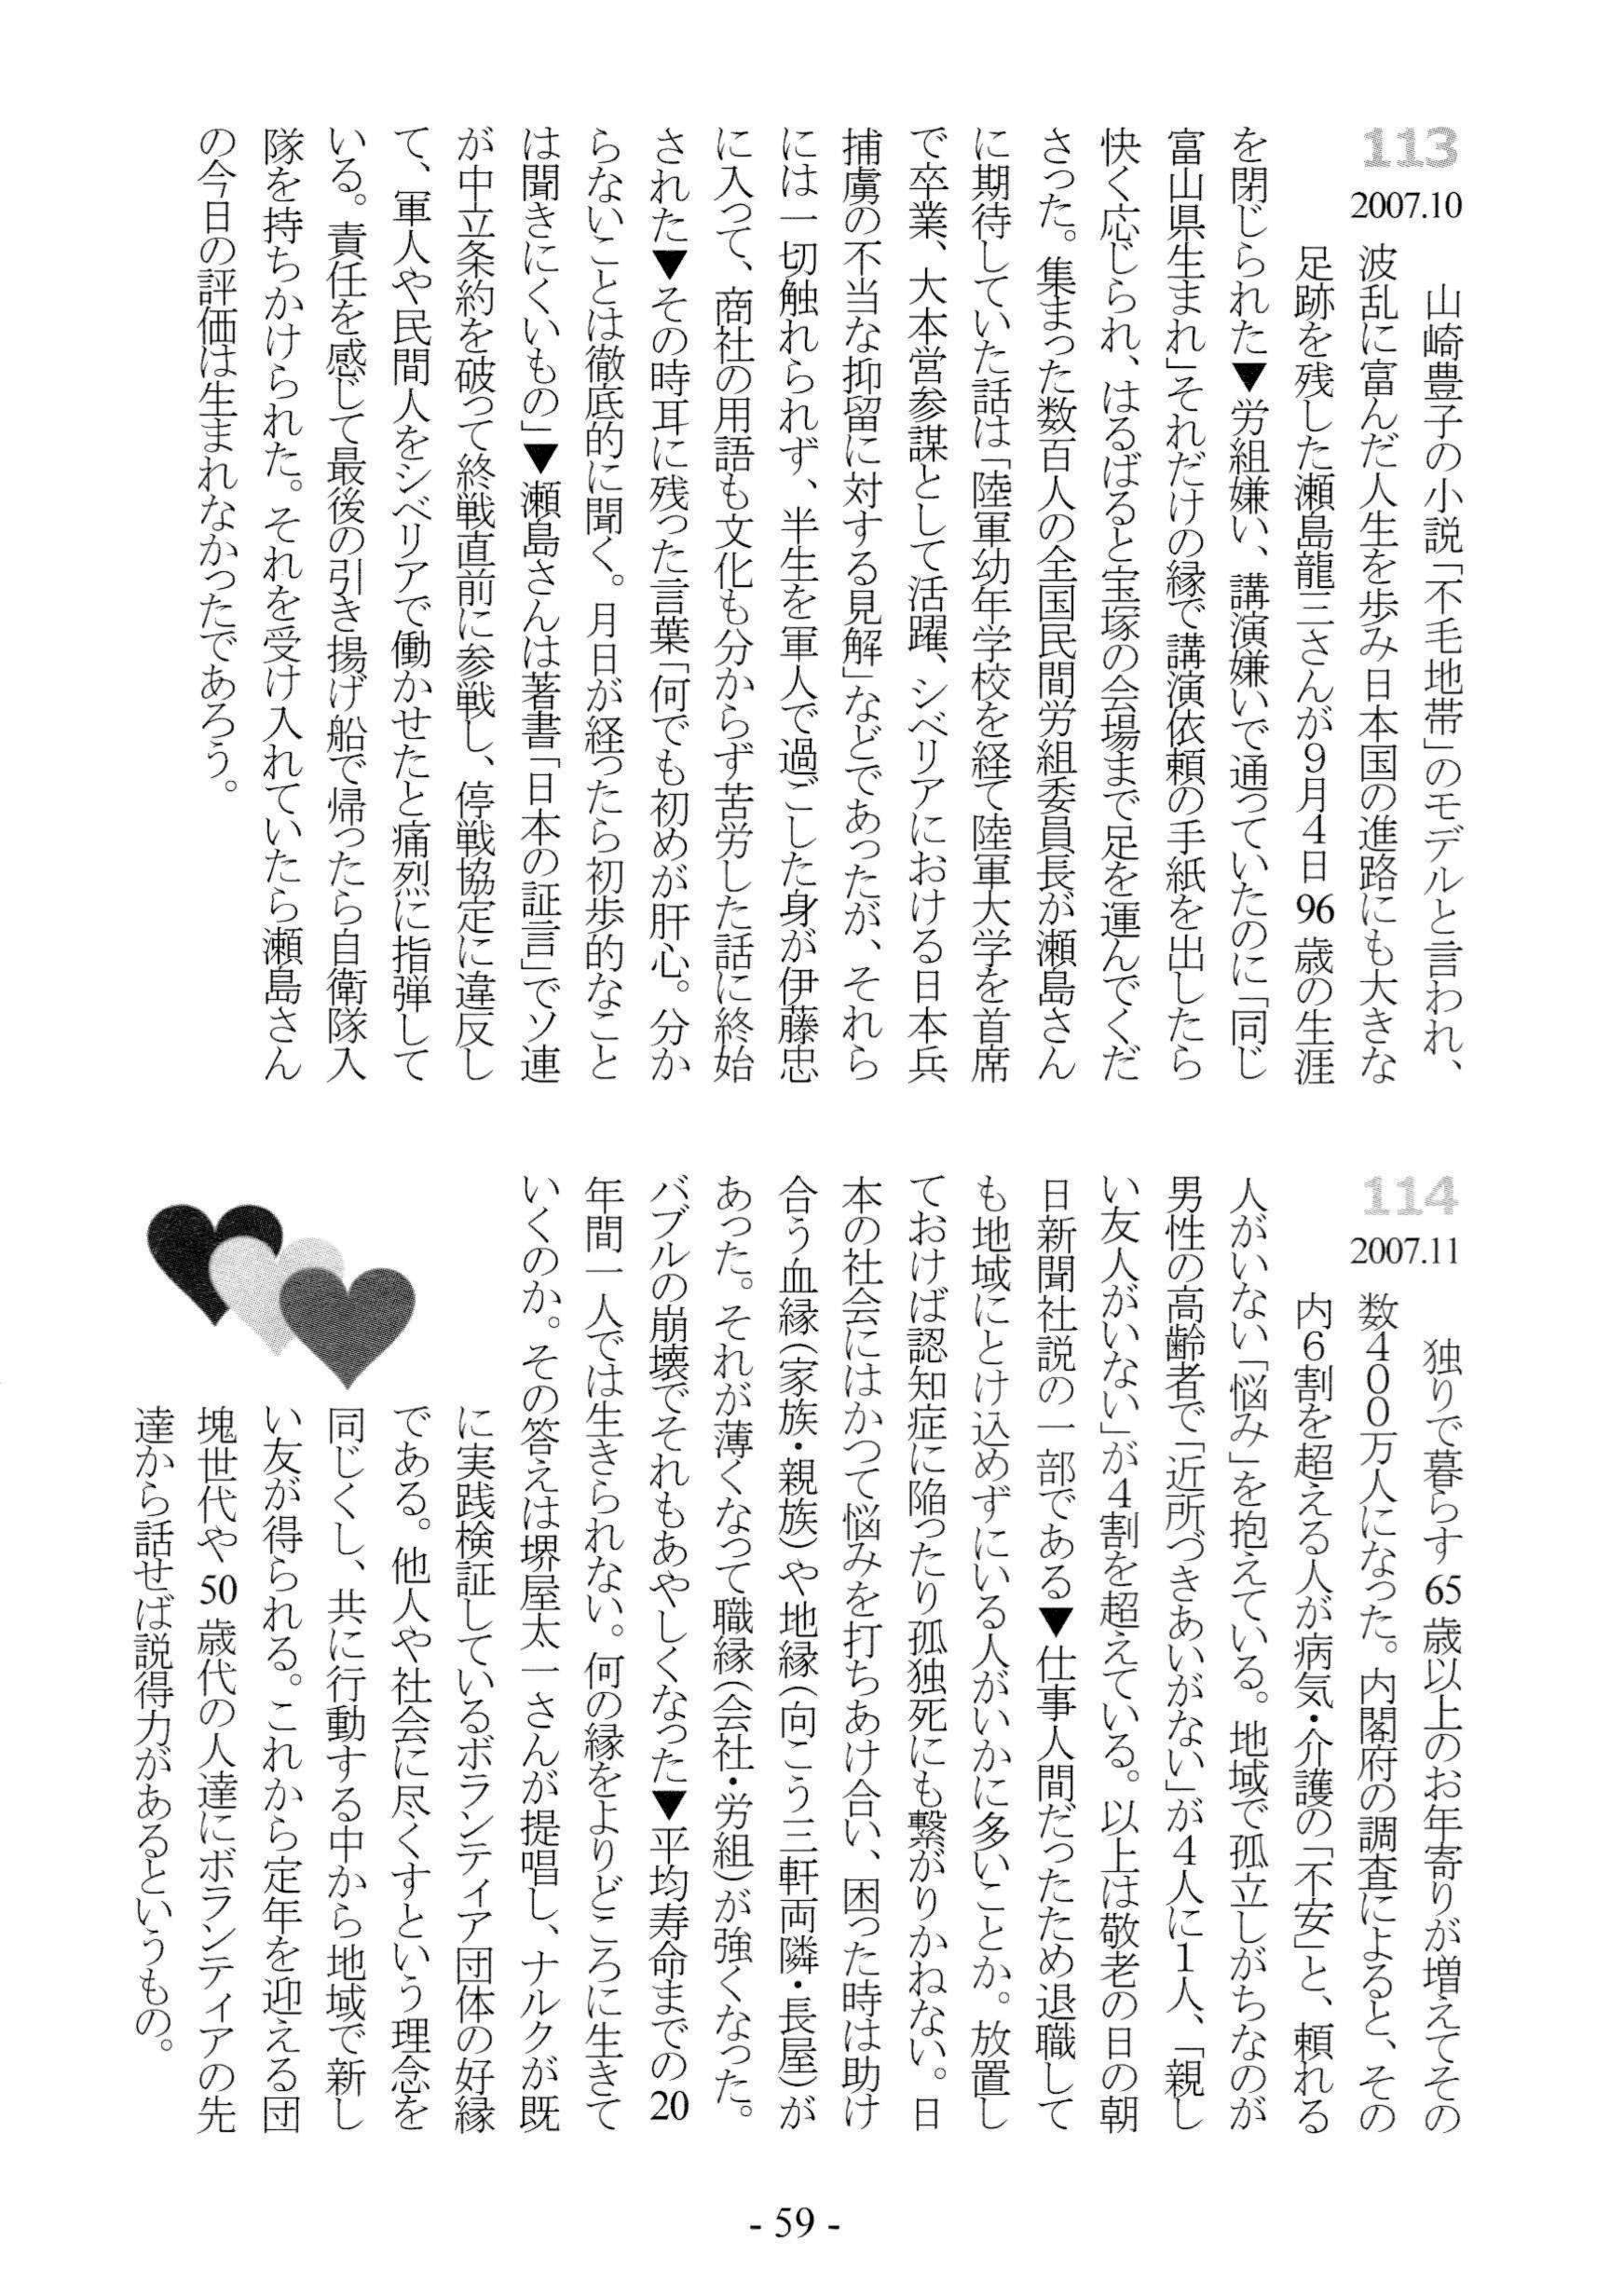 113
2007.10
山崎豊子の小説「不毛地帯」のモデルと言われ、
波乱に富んだ人生を歩み日本国の進路にも大きな
足跡を残した瀬島龍三さんが９月４日96歳の生涯
を閉じられた▼労組嫌い、講演嫌いで通っていたのに「同じ
富山県生まれ」それだけの縁で講演依頼の手紙を出したら
快く応じられ、はるばると宝塚の会場まで足を運んでくだ
さった。集まった数百人の全国民間労組委員長が瀬島さん
に期待していた話は「陸軍幼年学校を経て陸軍大学を首席
で卒業、大本営参謀として活躍、シベリアにおける日本兵
捕虜の不当な抑留に対する見解」などであったが、それら
には一切触れられず、半生を軍人で過ごした身が伊藤忠
に入って、商社の用語も文化も分からず苦労した話に終始
された▼その時耳に残った言葉「何でも初めが肝心。分か
らないことは徹底的に聞く。月日が経ったら初歩的なこと
は聞きにくいもの」▼瀬島さんは著書「日本の証言」でソ連
が中立条約を破って終戦直前に参戦し、停戦協定に違反し
て、軍人や民間人をシベリアで働かせたと痛烈に指弾して
いる。責任を感じて最後の引き揚げ船で帰ったら自衛隊入
隊を持ちかけられた。それを受け入れていたら瀬島さん
の今日の評価は生まれなかったであろう。
114
2007.11
独りで暮らす65歳以上のお年寄りが増えてその
数４００万人になった。内閣府の調査によると、その
内６割を超える人が病気・介護の「不安」と、頼れる
人がいない「悩み」を抱えている。地域で孤立しがちなのが
男性の高齢者で「近所づきあいがない」が４人に１人、「親し
い友人がいない」が４割を超えている。以上は敬老の日の朝
日新聞社説の一部である▼仕事人間だったため退職して
も地域にとけ込めずにいる人がいかに多いことか。放置し
ておけば認知症に陥ったり孤独死にも繋がりかねない。日
本の社会にはかつて悩みを打ちあけ合い、困った時は助け
合う血縁（家族・親族）や地縁（向こう三軒両隣・長屋）が
あった。それが薄くなって職縁（会社・労組）が強くなった。
バブルの崩壊でそれもあやしくなった▼平均寿命までの20
年間一人では生きられない。何の縁をよりどころに生きて
いくのか。その答えは堺屋太一さんが提唱し、ナルクが既
に実践検証しているボランティア団体の好縁
である。他人や社会に尽くすという理念を
同じくし、共に行動する中から地域で新し
い友が得られる。これから定年を迎える団
塊世代や50歳代の人達にボランティアの先
達から話せば説得力があるというもの。
- 59 -